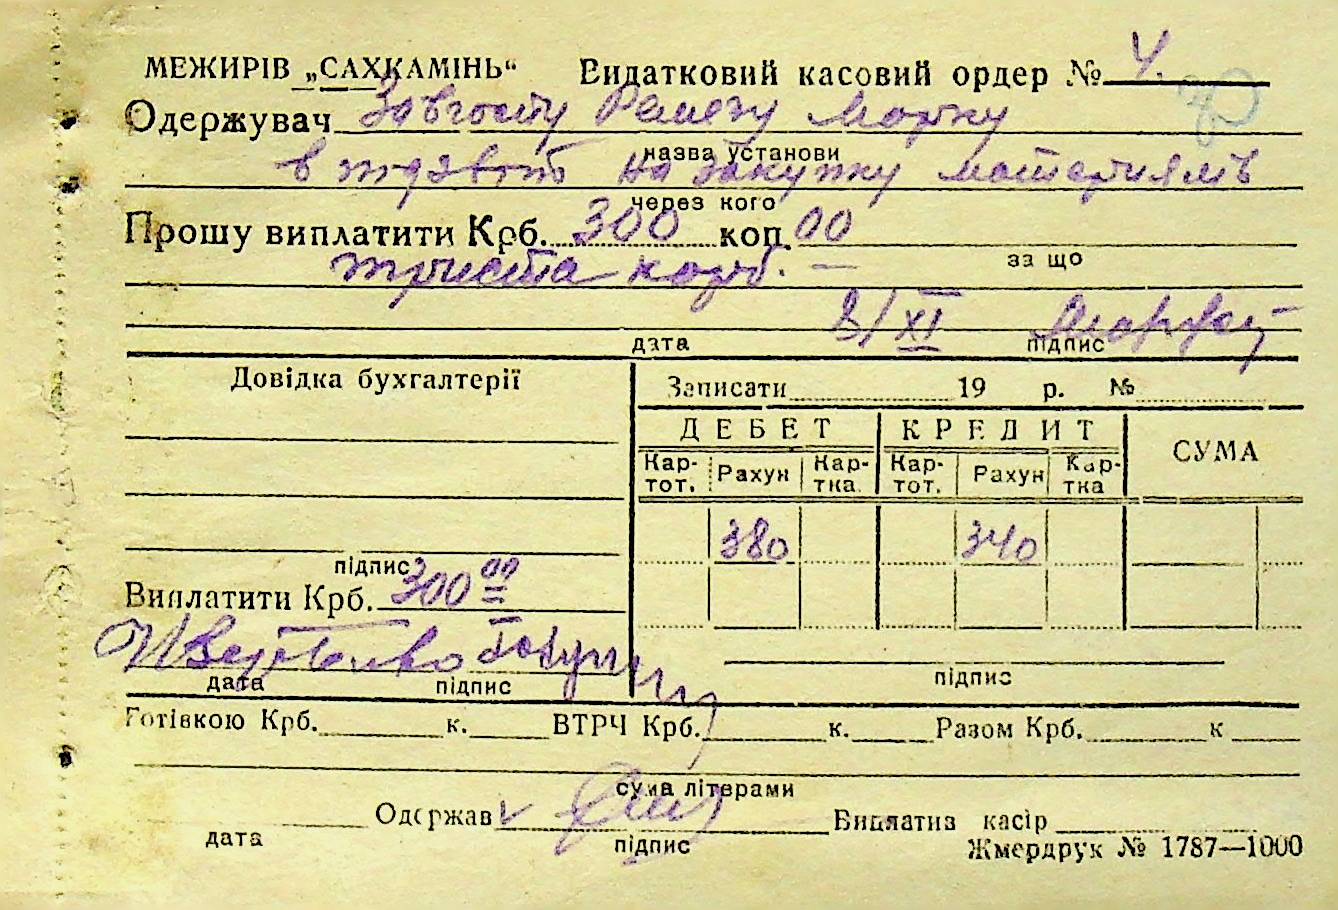 МЕЖИРІВ „САХКАМІНЬ“ Видатковий касовий ордер № 4.
Одержувач Завгоспу Ремезу Марку
назва установи
в подзвіт на закупку материялів
через кого
Прошу виплатити Крб. 300 коп. 00
за що
триста карб. —
8/XI
дата підпис
Довідка бухгалтерії
Записати 19 р. №
ДЕБЕТ КРЕДИТ СУМА
Кар-тот. Рахун Кар-тка Кар-тот. Рахун Кар-тка
380 340
підпис
Виплатити Крб. 300 00
дата підпис
підпис
Готівкою Крб. к. ВТРЧ Крб. к. Разом Крб. к
сума літерами
Одержав Виплатив касір
дата підпис
Жмердрук № 1787—1000